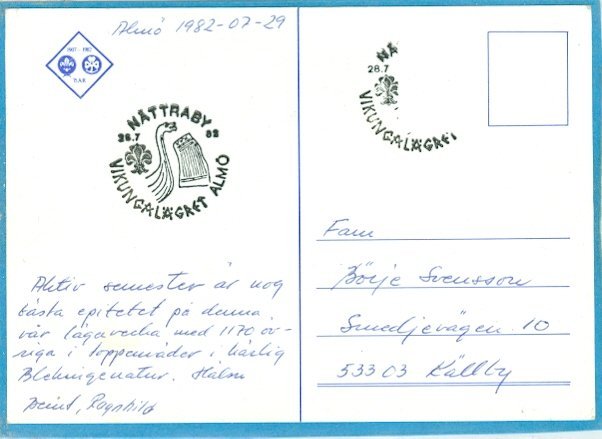 Almö 1982-07-29
1907 - 1982
NÄTTRABY
28.7 82
VIKUNGALÄGRET ALMÖ
NÄ
28.7
VIKUNGALÄGRET
Aktiv semester är nog
bästa epitetet på denna
vår lägervecka med 1170 öv-
riga i toppenväder i härlig
Blekingenatur. Hälsn
Ragnhild
Fam
Börje Svensson
Smedjevägen 10
533 03 Källby